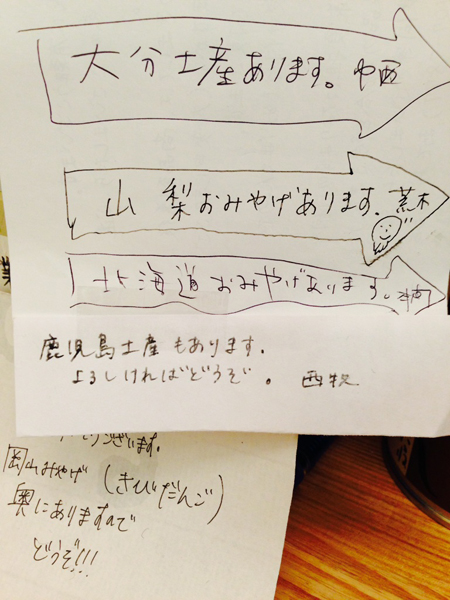 大分土産あります。中西
山梨おみやげあります。荒木
北海道おみやげあります。
業
鹿児島土産もあります。
よろしければどうぞ。 西牧
ございます。
岡山みやげ (きびだんご)
奥にありますので
どうぞ!!!